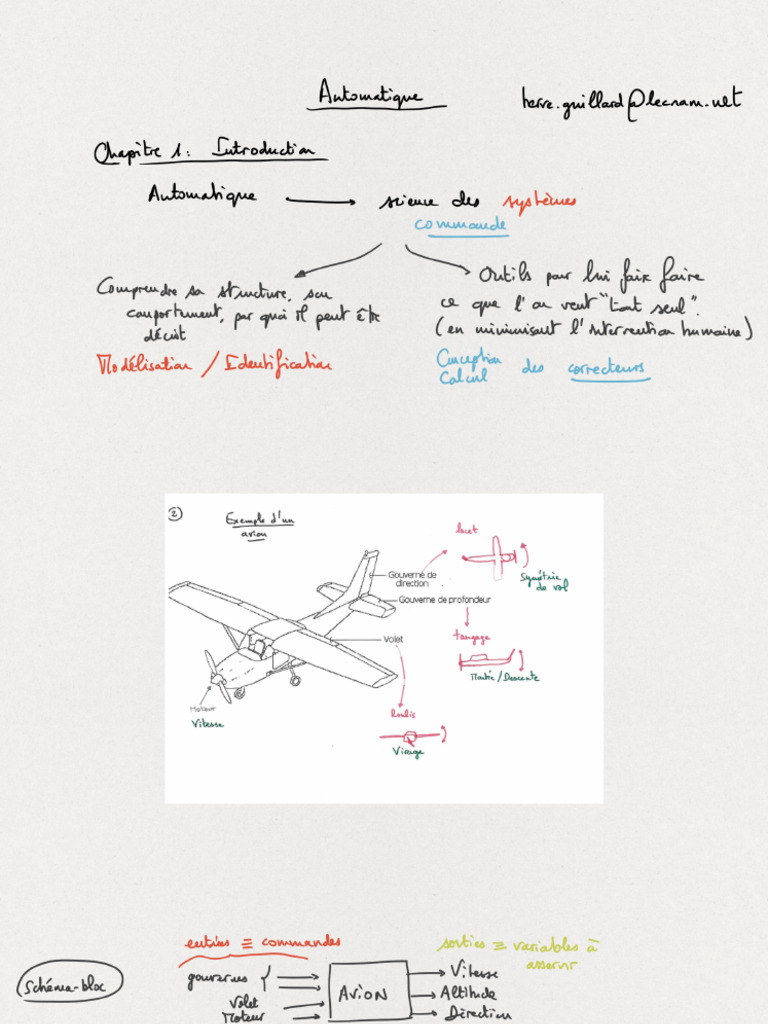 Automatique
herve.guillard@lecnam.net
Chapitre 1: Introduction
Automatique → science des systèmes
commande
Comprendre sa structure, son
comportement, par quoi il peut être
décrit
Modélisation / Identification
Outils pour lui faire faire
ce que l'on veut "tout seul".
(en minimisant l'intervention humaine)
Conception
Calcul des correcteurs
②
Exemple d'un
avion
lacet
Symétrie
de vol
Gouverne de
direction
Gouverne de profondeur
tangage
Montée/Descente
Volet
Roulis
Virage
Moteur
Vitesse
entrées ≡ commandes
sorties ≡ variables à
asservir
Schéma-bloc
gouvernes
Volet
Moteur
AVION
Vitesse
Altitude
Direction